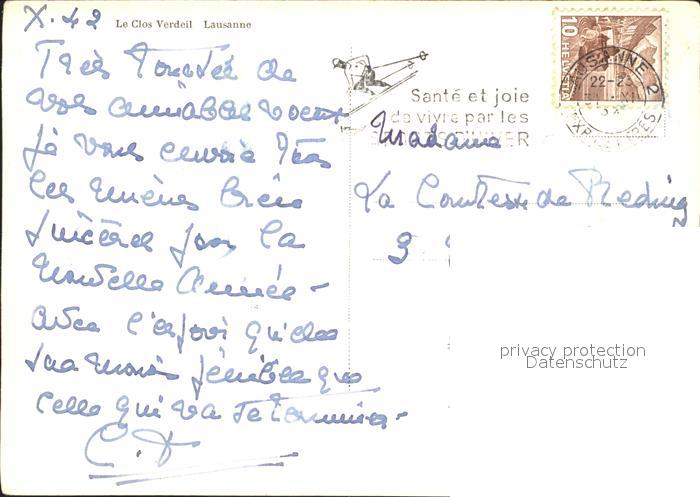 X. 42
Le Clos Verdeil Lausanne
Très Touchée de
vos aimables voeux
je vous envoie
les miens bien
sincères pour la
Nouvelle Année -
avec l'espoir qu'elle
sera moins pénible que
celle qui va se terminer -
10
HELVETIA
LAUSANNE 2
22-23
Santé et joie
de vivre par les
SPORTS D'HIVER
Madame
La Comtesse de Reding
privacy protection
Datenschutz